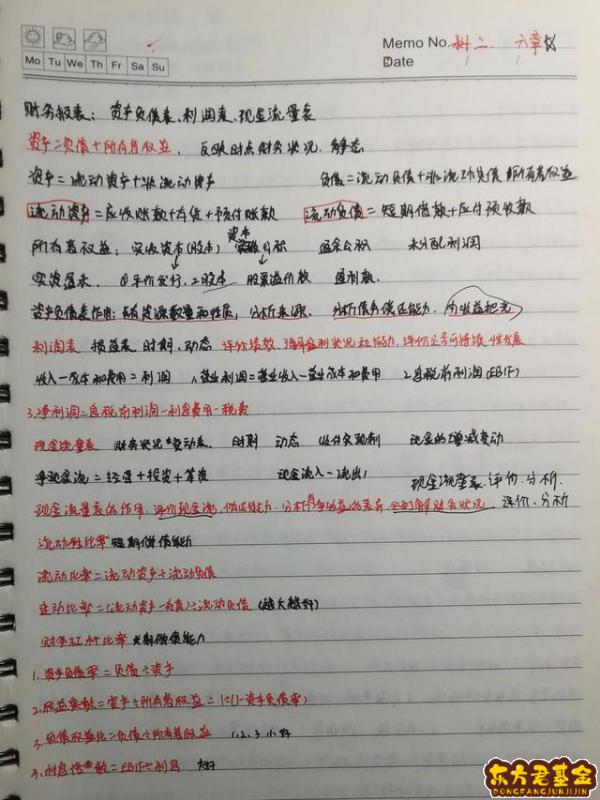 Memo No. 科二 六章
Mo Tu We Th Fr Sa Su
Date / /
财务报表：资产负债表、利润表、现金流量表
资产=负债+所有者权益、反映时点财务状况、静态
资产=流动资产+非流动资产 负债=流动负债+非流动负债 所有者权益
流动资产=应收账款+存货+预付账款 流动负债=短期借款+应付预收款
资本
所有者权益：实收资本(股本) 公积 盈余公积 未分配利润
①平价发行，②股本 股票溢价款
资产负债表作用：资源数量和性质，分析来源、分析债务偿还能力、收益把关
利润表 损益表 时期、动态 评价绩效、了解盈利状况和能力、评价是否可持续性发展
收入-成本和费用=利润 1.营业利润=营业收入-营业成本和费用 2.息税前利润(EBIT)
3.净利润=息税前利润-利息费用-税费
现金流量表 财务状况变动表、时期 动态 收付实现制 现金的增减变动
净现金流=经营+投资+筹资 现金流入-流出
现金流量表、评价、分析、
现金流量表的作用、评价现金流、偿还能力、分析净收益的差异、了解财务状况 评价、分析
流动性比率 短期偿债能力
流动比率=流动资产÷流动负债
速动比率=(流动资产-存货)÷流动负债 (越大越好)
财务杠杆比率 长期偿债能力
1.资产负债率=负债÷资产
2.权益乘数=资产÷所有者权益=1÷(1-资产负债率)
3.负债权益比=负债÷所有者权益 1,2,3 小好
4.利息倍数=EBIT÷利息 大好
东方君基金
DONGFANGJUNJIJIN